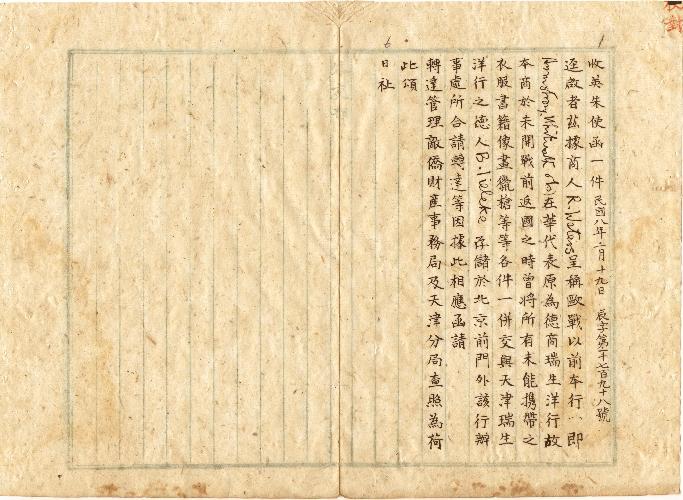 校對
1
收英朱使函一件 民國八年二月十九日 辰字第一千七百九十八號
逕啟者茲據商人R. Waters呈稱歐戰以前本行(即
Armstrong, Whitworth & Co)在華代表原為德商瑞生洋行故
本商於未開戰前返國之時曾將所有未能携帶之
衣服書籍像畫獵槍等等各件一併交與天津瑞生
洋行之德人B. 存儲於北京前門外該行辦
事處所合請轉達等因據此相應函請
轉達管理敵僑財產事務局及天津分局查照為荷
此頌
日祉
6